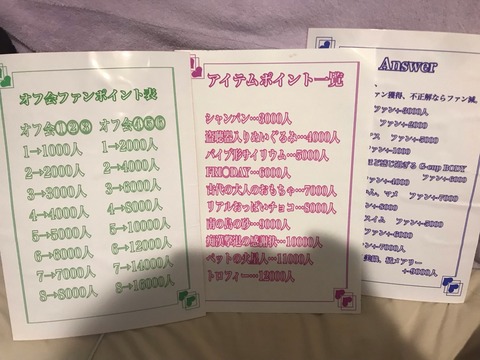 オフ会ファンポイント表
オフ会❶❷❸ オフ会❹❺❻
1→1000人 1→2000人
2→2000人 2→4000人
3→3000人 3→8000人
4→4000人 4→8000人
5→5000人 5→10000人
6→6000人 6→12000人
7→7000人 7→14000人
8→8000人 8→16000人
アイテムポイント一覧
シャンパン…3000人
盗聴器入りぬいぐるみ…4000人
パイプ形サイリウム…5000人
FM○DAY…6000人
古代の大人のおもちゃ…7000人
リアルおっぱいチョコ…8000人
南の島の砂…9000人
痴漢撃退の感謝状…10000人
ペットの火星人…11000人
トロフィー…12000人
Answer
ファン獲得、不正解ならファン減。
ファン+-3000人
ファン+-2000
ス ファン+-5000
ほど感じ過ぎる G-cup BODY
ファン+-6000
+-4000
ん、マメ ファン+-7000
ァン+-1000
スイム ファン+-5000
ン+-5000
ァン+-7000人
美 、 メアリー
+-9000人